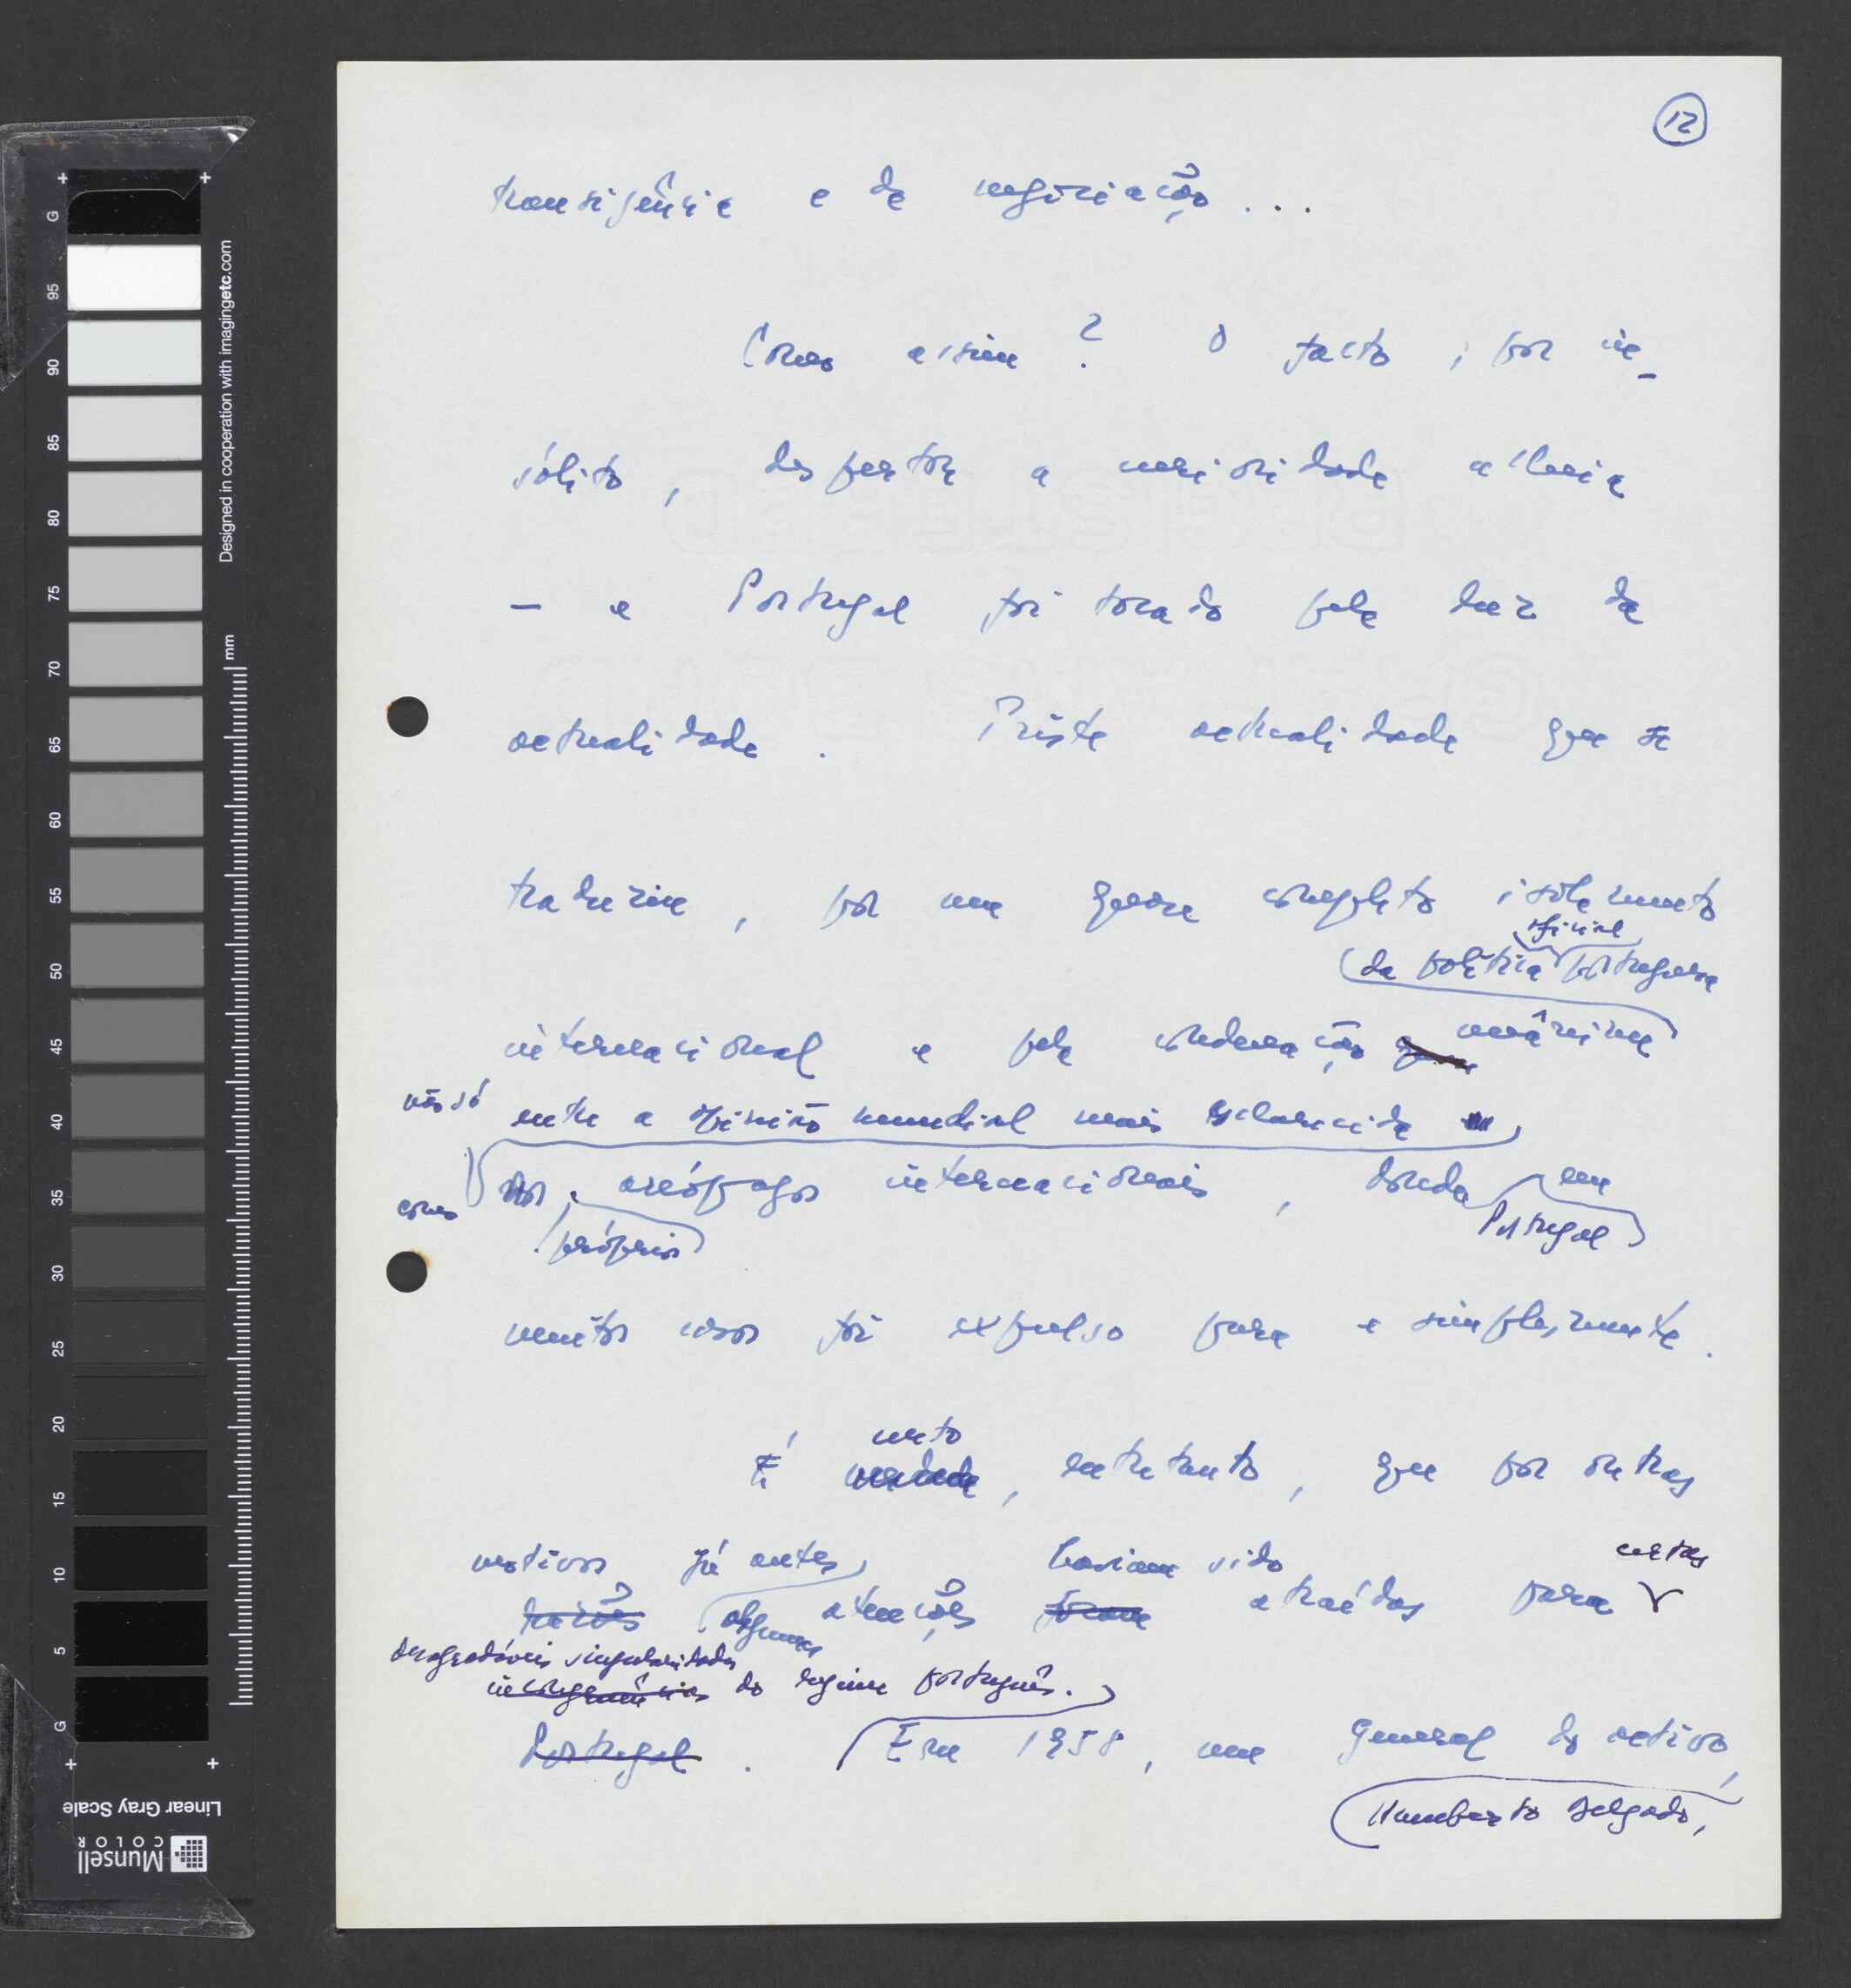 12
transigência e de negociação...
Como assim? O facto, por in-
sólito, despertou a curiosidade alheia
— e Portugal foi tocado pela luz da
actualidade. Triste actualidade que se
traduziu, por um quase completo isolamento
oficial
da política portuguesa
internacional e pela condenação unânime
não só
entre a opinião mundial mais esclarecida
como nos areópagos internacionais, donde em
próprios
Portugal
muitos casos foi expulso pura e simplesmente.
certo
É verdade, entretanto, que por outras
motivos já antes haviam sido certas
razões algumas atenções foram atraídas para
desagradáveis singularidades
incongruências do regime português.
Portugal. Em 1958, um General do activo,
Humberto Delgado,
G 95 90 85 80 75 70 65 60 55 50 45 40 35 30 25 20 15 10 5 G
mm
Designed in cooperation with imagingetc.com
Linear Gray Scale
Munsell
COLOR